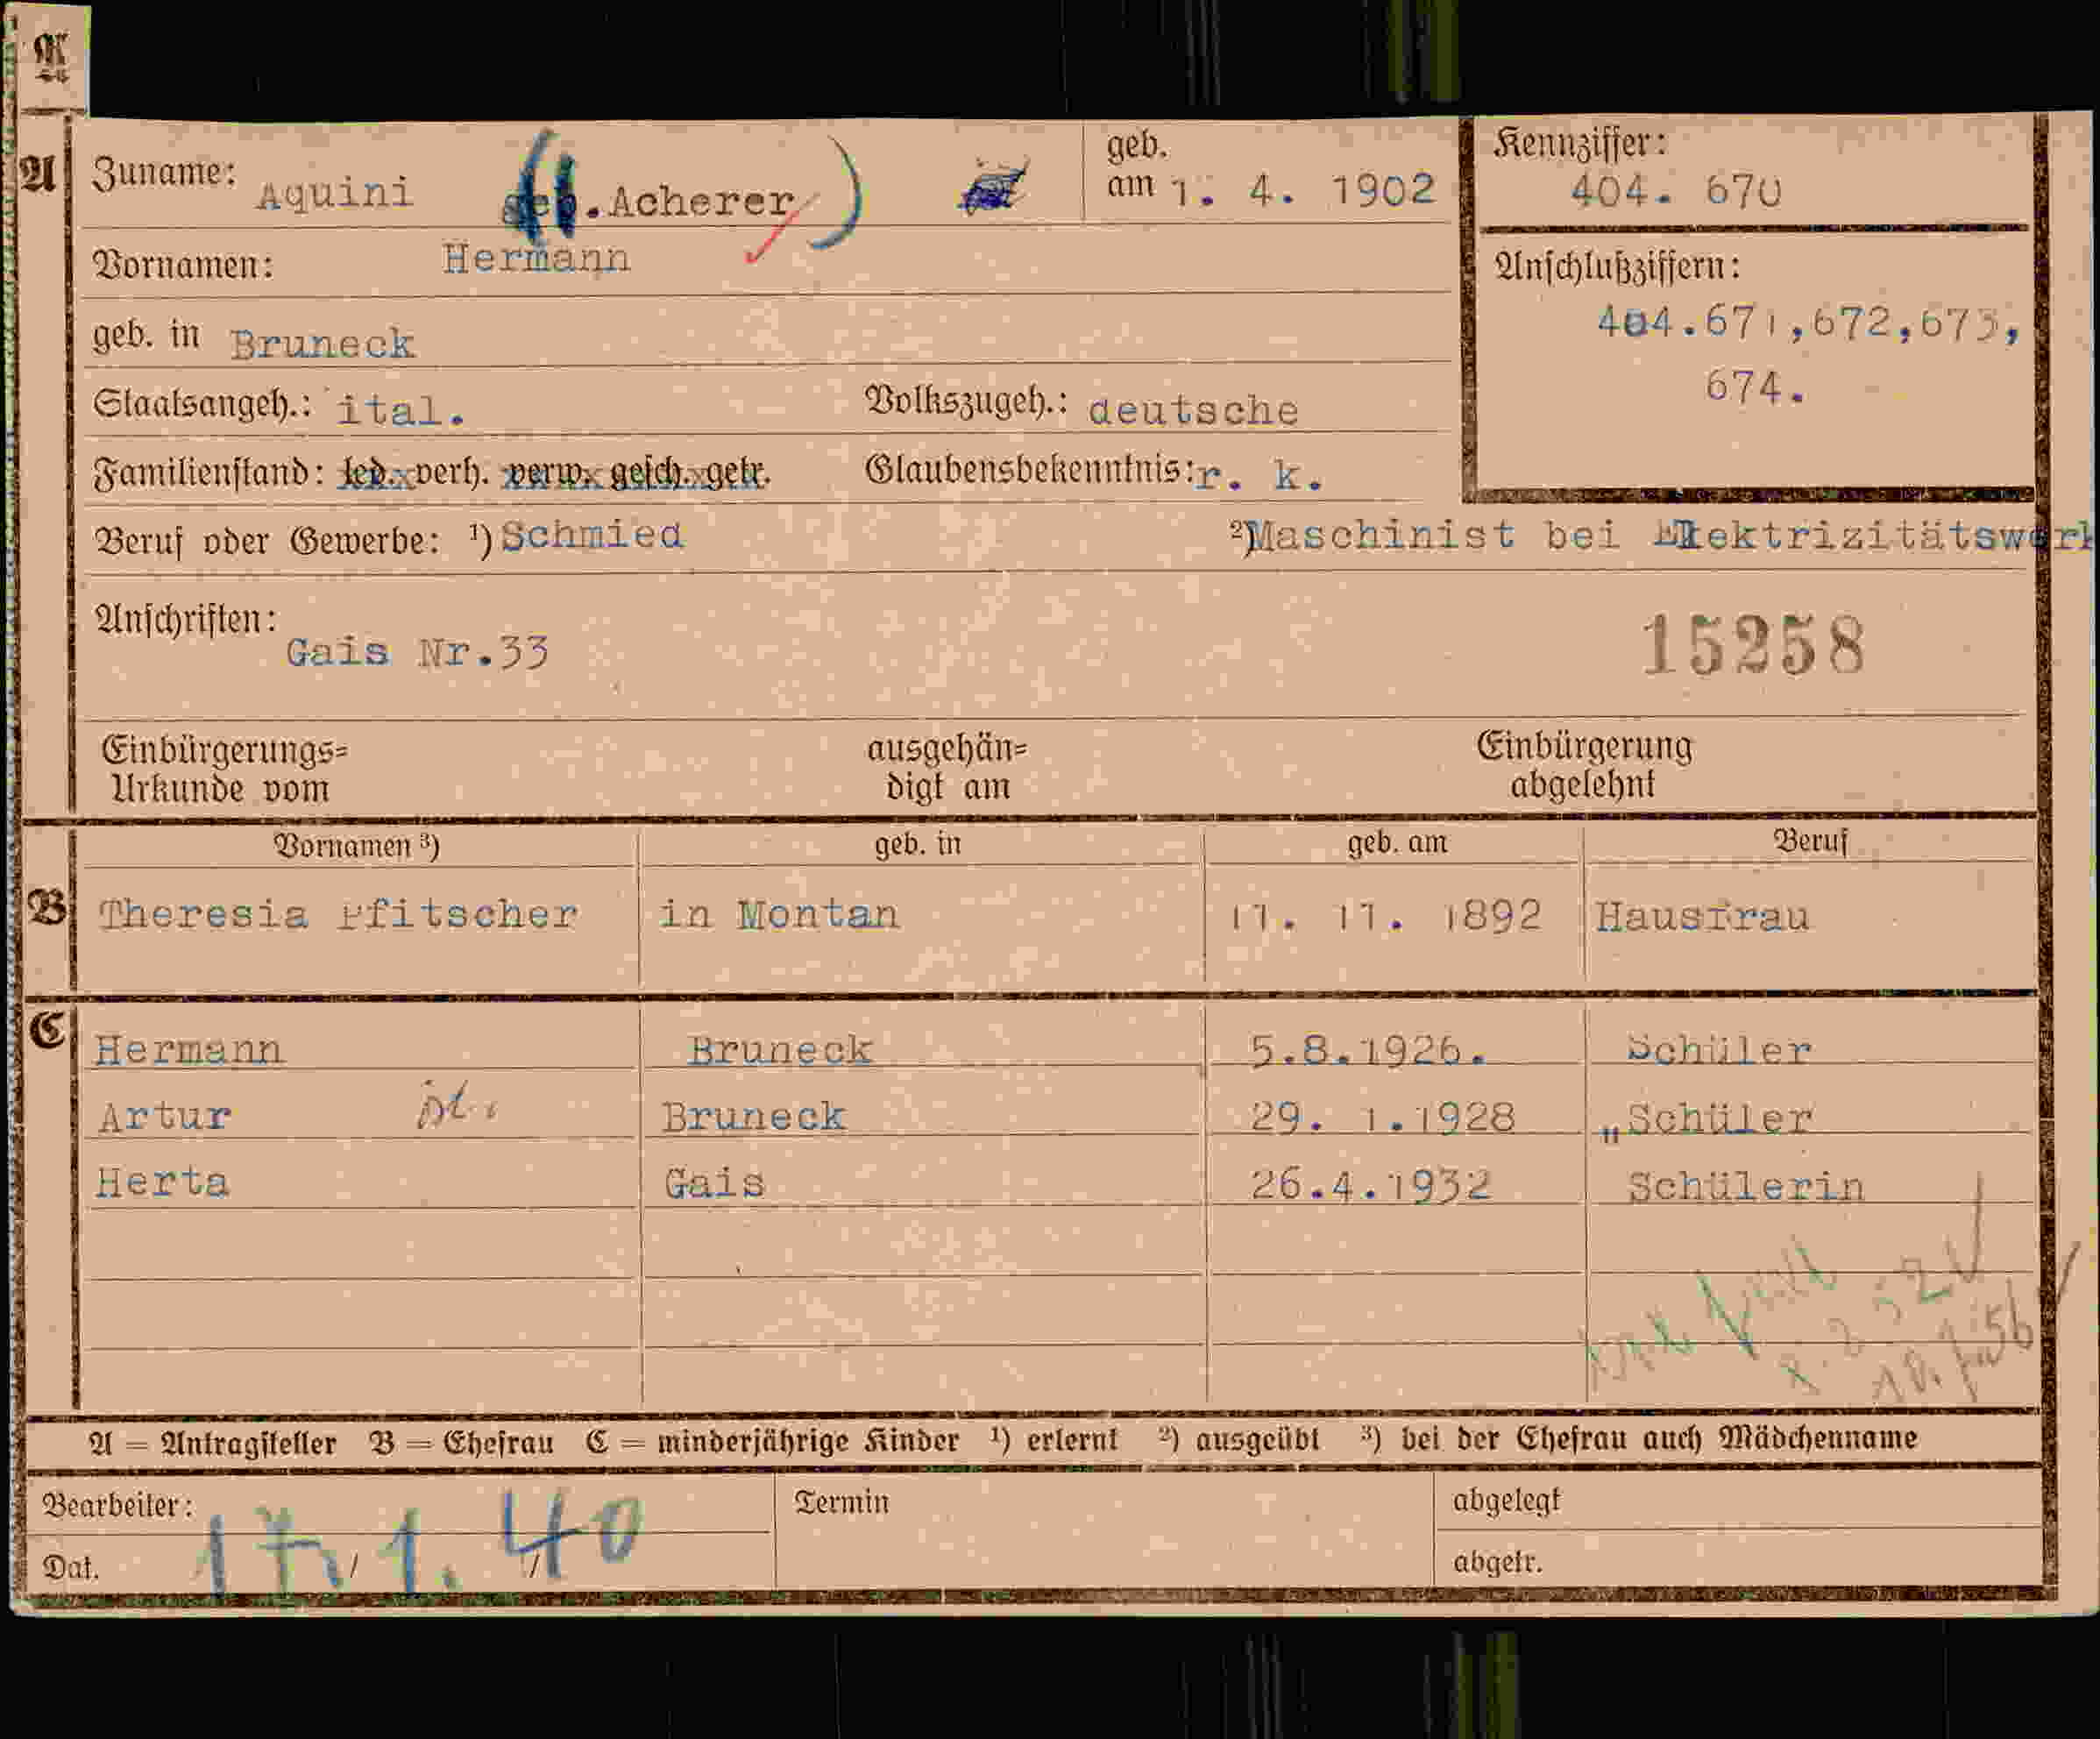 A
Zuname: Aquini (geb. Acherer)
geb. am 1. 4. 1902
Kennziffer: 404. 670
Vornamen: Hermann
Anschlußziffern:
404.671,672,673,
674.
geb. in Bruneck
Staatsangeh.: ital. Volkszugeh.: deutsche
Familienstand: led. verh. verw. gesch. getr. Glaubensbekenntnis: r. k.
Beruf oder Gewerbe: ¹) Schmied ²) Maschinist bei Elektrizitätswerk
Anschriften:
Gais Nr.33
15258
Einbürgerungs= Urkunde vom
ausgehän= digt am
Einbürgerung abgelehnt
Vornamen ³) geb. in geb. am Beruf
B Theresia Pfitscher in Montan 11. 11. 1892 Hausfrau
C Hermann Bruneck 5.8.1926. Schüler
Artur Bruneck 29. 1.1928 „Schüler
Herta Gais 26.4.1932 Schülerin
A = Antragsteller B = Ehefrau C = minderjährige Kinder ¹) erlernt ²) ausgeübt ³) bei der Ehefrau auch Mädchenname
Bearbeiter: Termin abgelegt
Dat. 17/1. 40 abgetr.